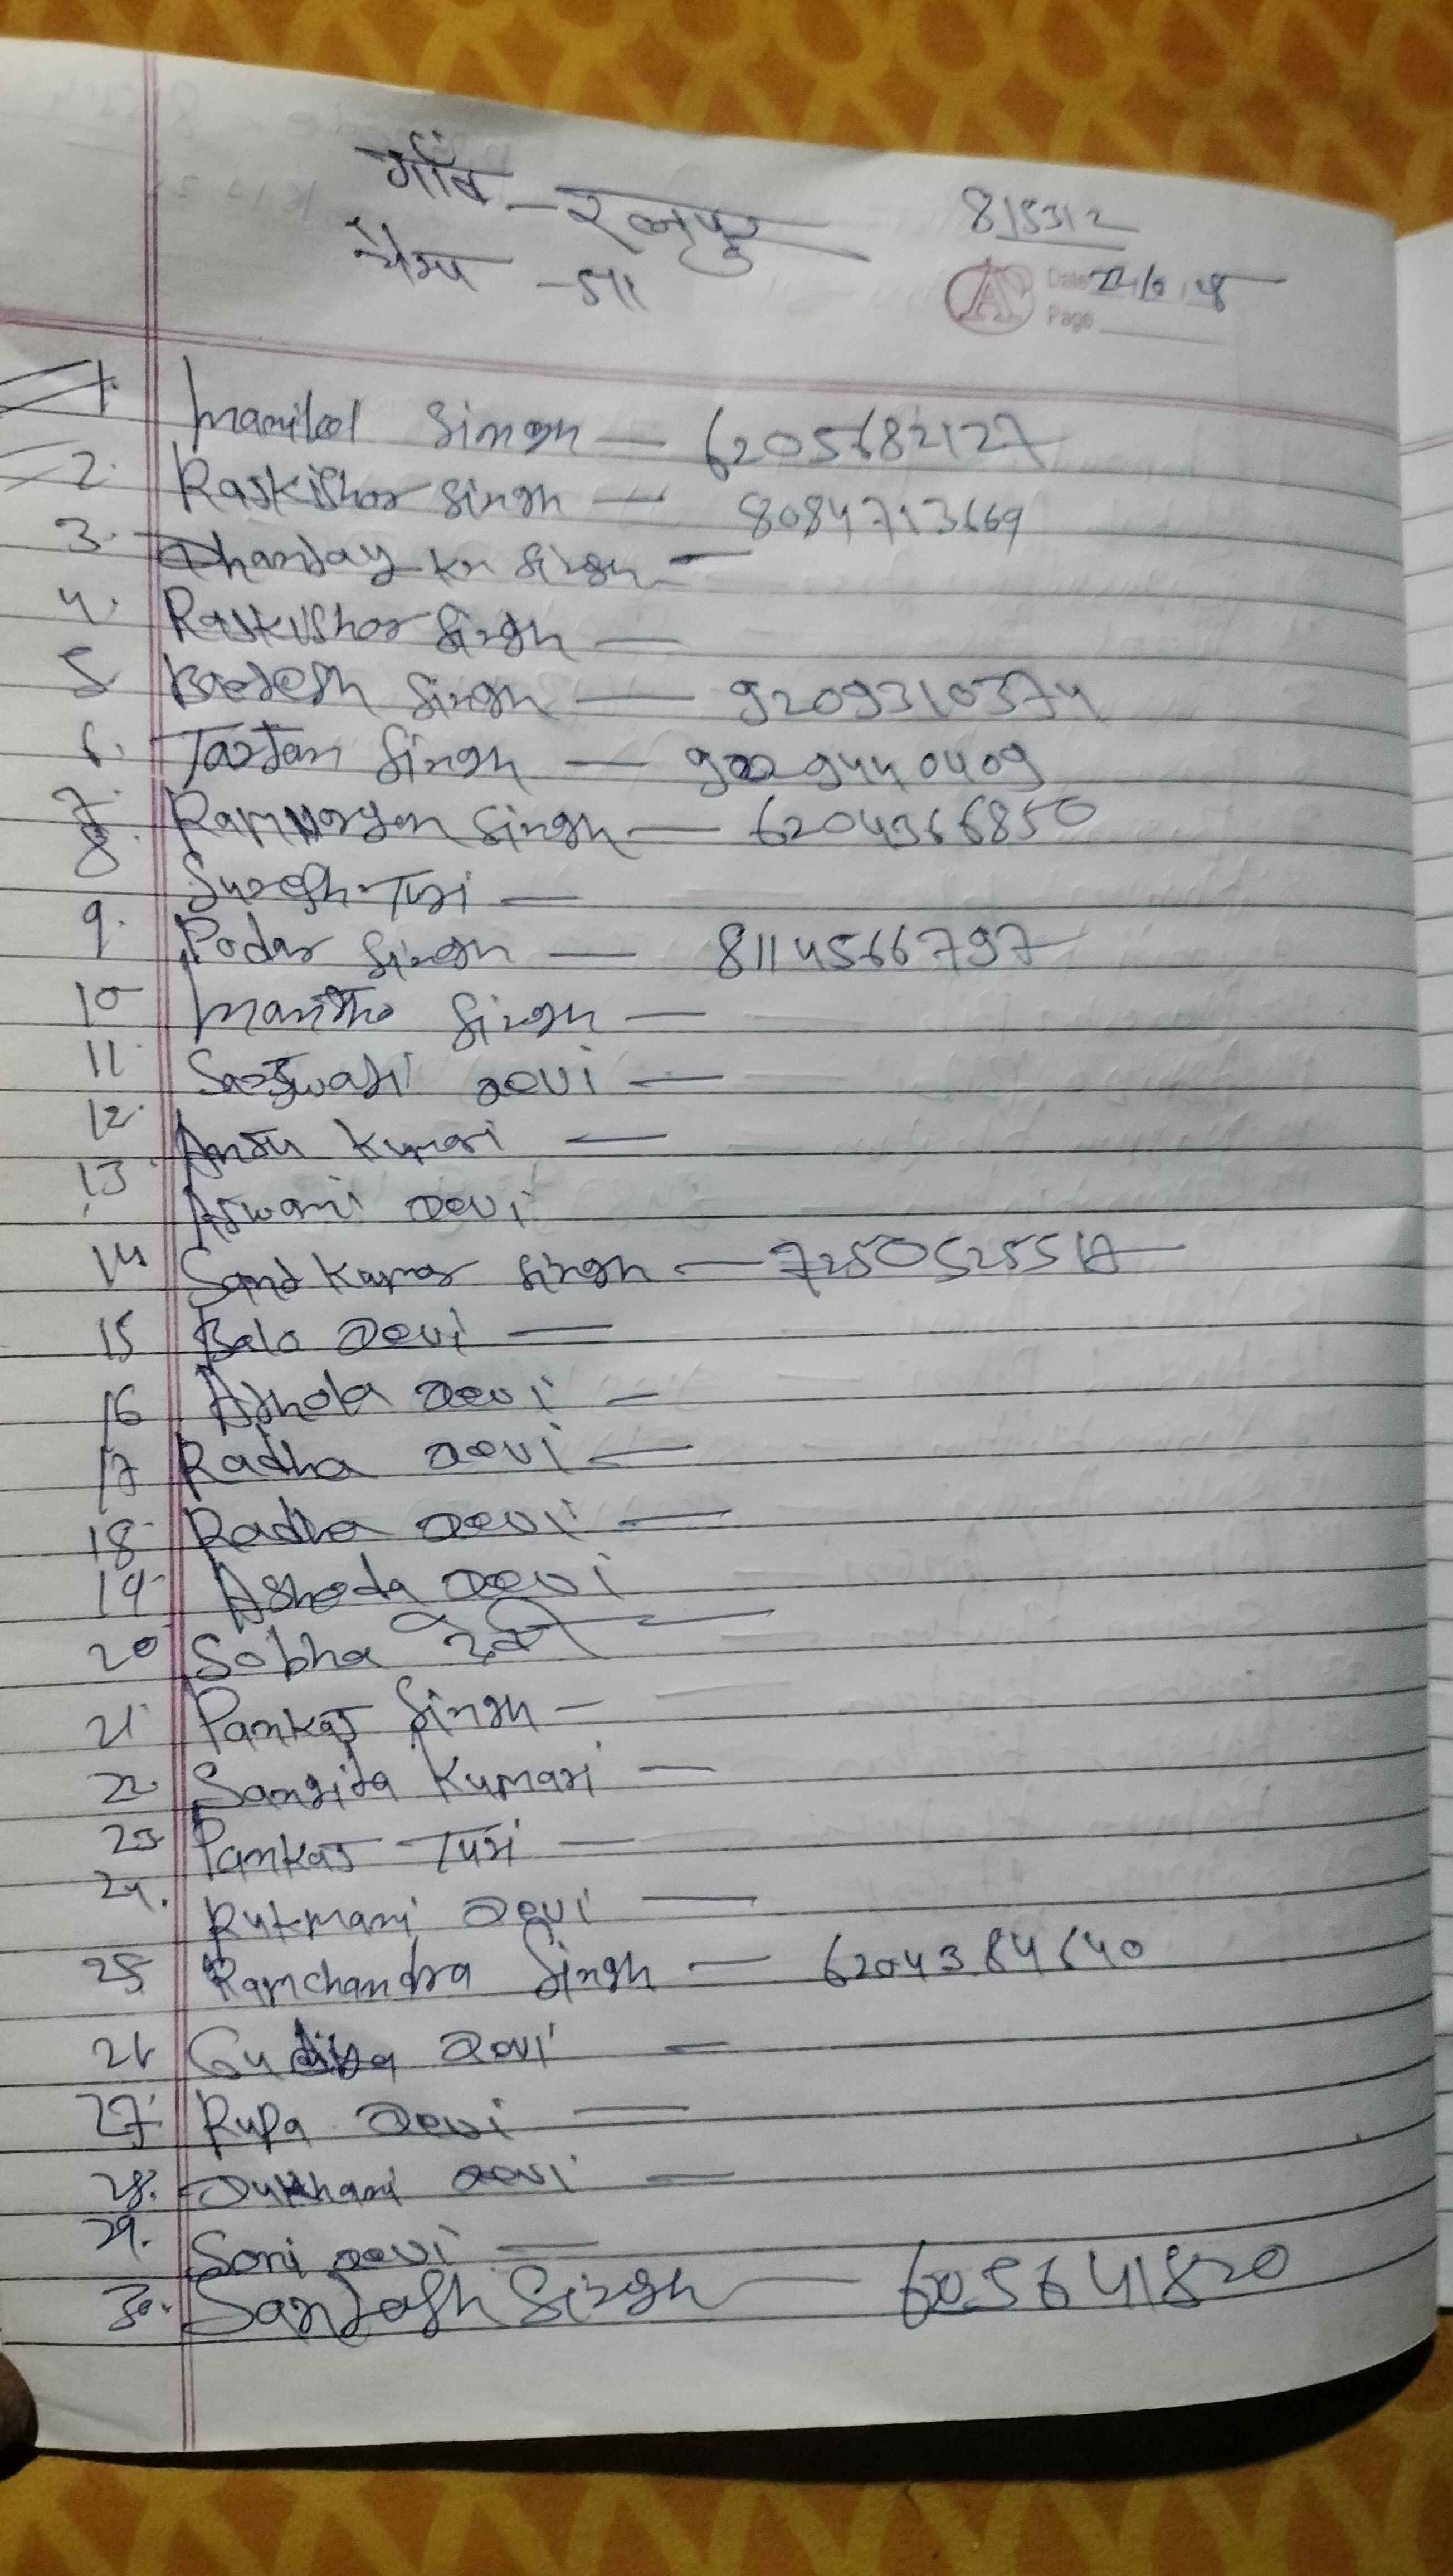 गाँव - रतनपुर
815312
Date
Page
1. Manilal Singh — 6205682127
2. Rajkishor Singh — 8084713669
3. Dhanjay Kr Singh —
4. Rajkishor Singh —
5 Singh — 9209310374
6. Singh —
7. Ramnarayan Singh — 6204366850
8 Suresh Turi —
9. Podar Singh — 8114566797
10 Mantho Singh —
11. Devi —
12. Anju Kumari —
13 Aswani Devi
14 Kumar Singh — 7250525517
15 Bala Devi —
16 Ashoda Devi —
17 Radha Devi —
18 Radha Devi —
19 Ashoda Devi
20 Sobha देवी —
21. Pankaj Singh —
22. Sangita Kumari —
23. Pankaj Turi —
24. Rukmani Devi —
25 Ramchandra Singh — 6204384640
26 Gudiya Devi —
27. Rupa Devi —
28. Dukhani Devi —
29. Soni Devi —
30. Santosh Singh —